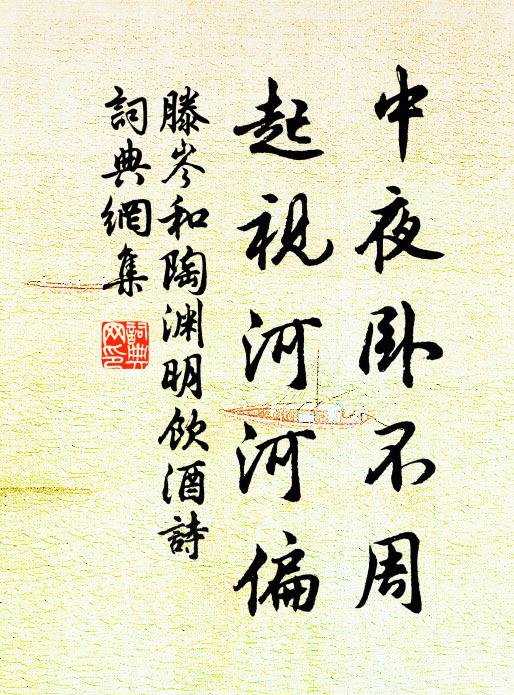 中夜卧不周
起視河河偏
滕岑和陶渊明飲酒詩
詞典網集
詞典
网印